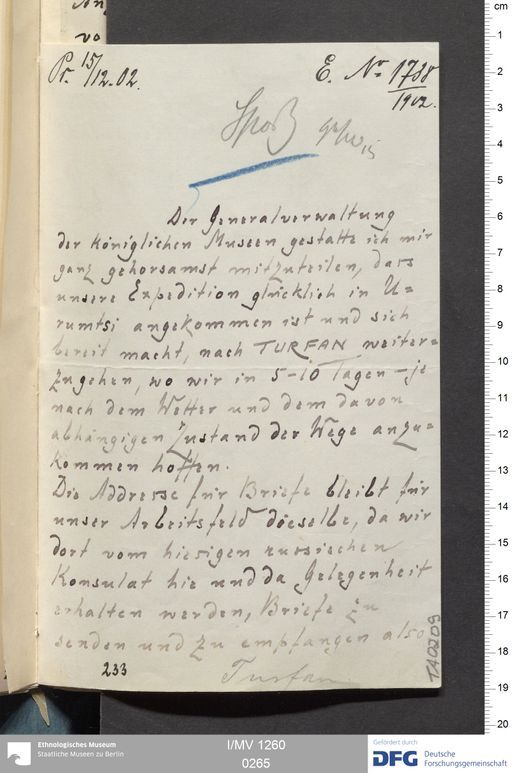 Pr. 15/12.02.
E. No 1738/1902.
Der Generalverwaltung
der königlichen Museen gestatte ich mir
ganz gehorsamst mitzuteilen, dass
unsere Expedition glücklich in U=
rumtsi angekommen ist und sich
bereit macht, nach TURFAN weiter=
zugehen, wo wir in 5-10 Tagen – je
nach dem Wetter und dem davon
abhängigen Zustand der Wege anzu=
kommen hoffen.
Die Addresse für Briefe bleibt für
unser Arbeitsfeld dieselbe, da wir
dort vom hiesigen russischen
Konsulat hie und da Gelegenheit
erhalten werden, Briefe zu
senden und zu empfangen also
Turfan
233
1A0209
Ethnologisches Museum
Staatliche Museen zu Berlin
I/MV 1260
0265
Gefördert durch
DFG Deutsche
Forschungsgemeinschaft
cm
1
2
3
4
5
6
7
8
9
10
11
12
13
14
15
16
17
18
19
20